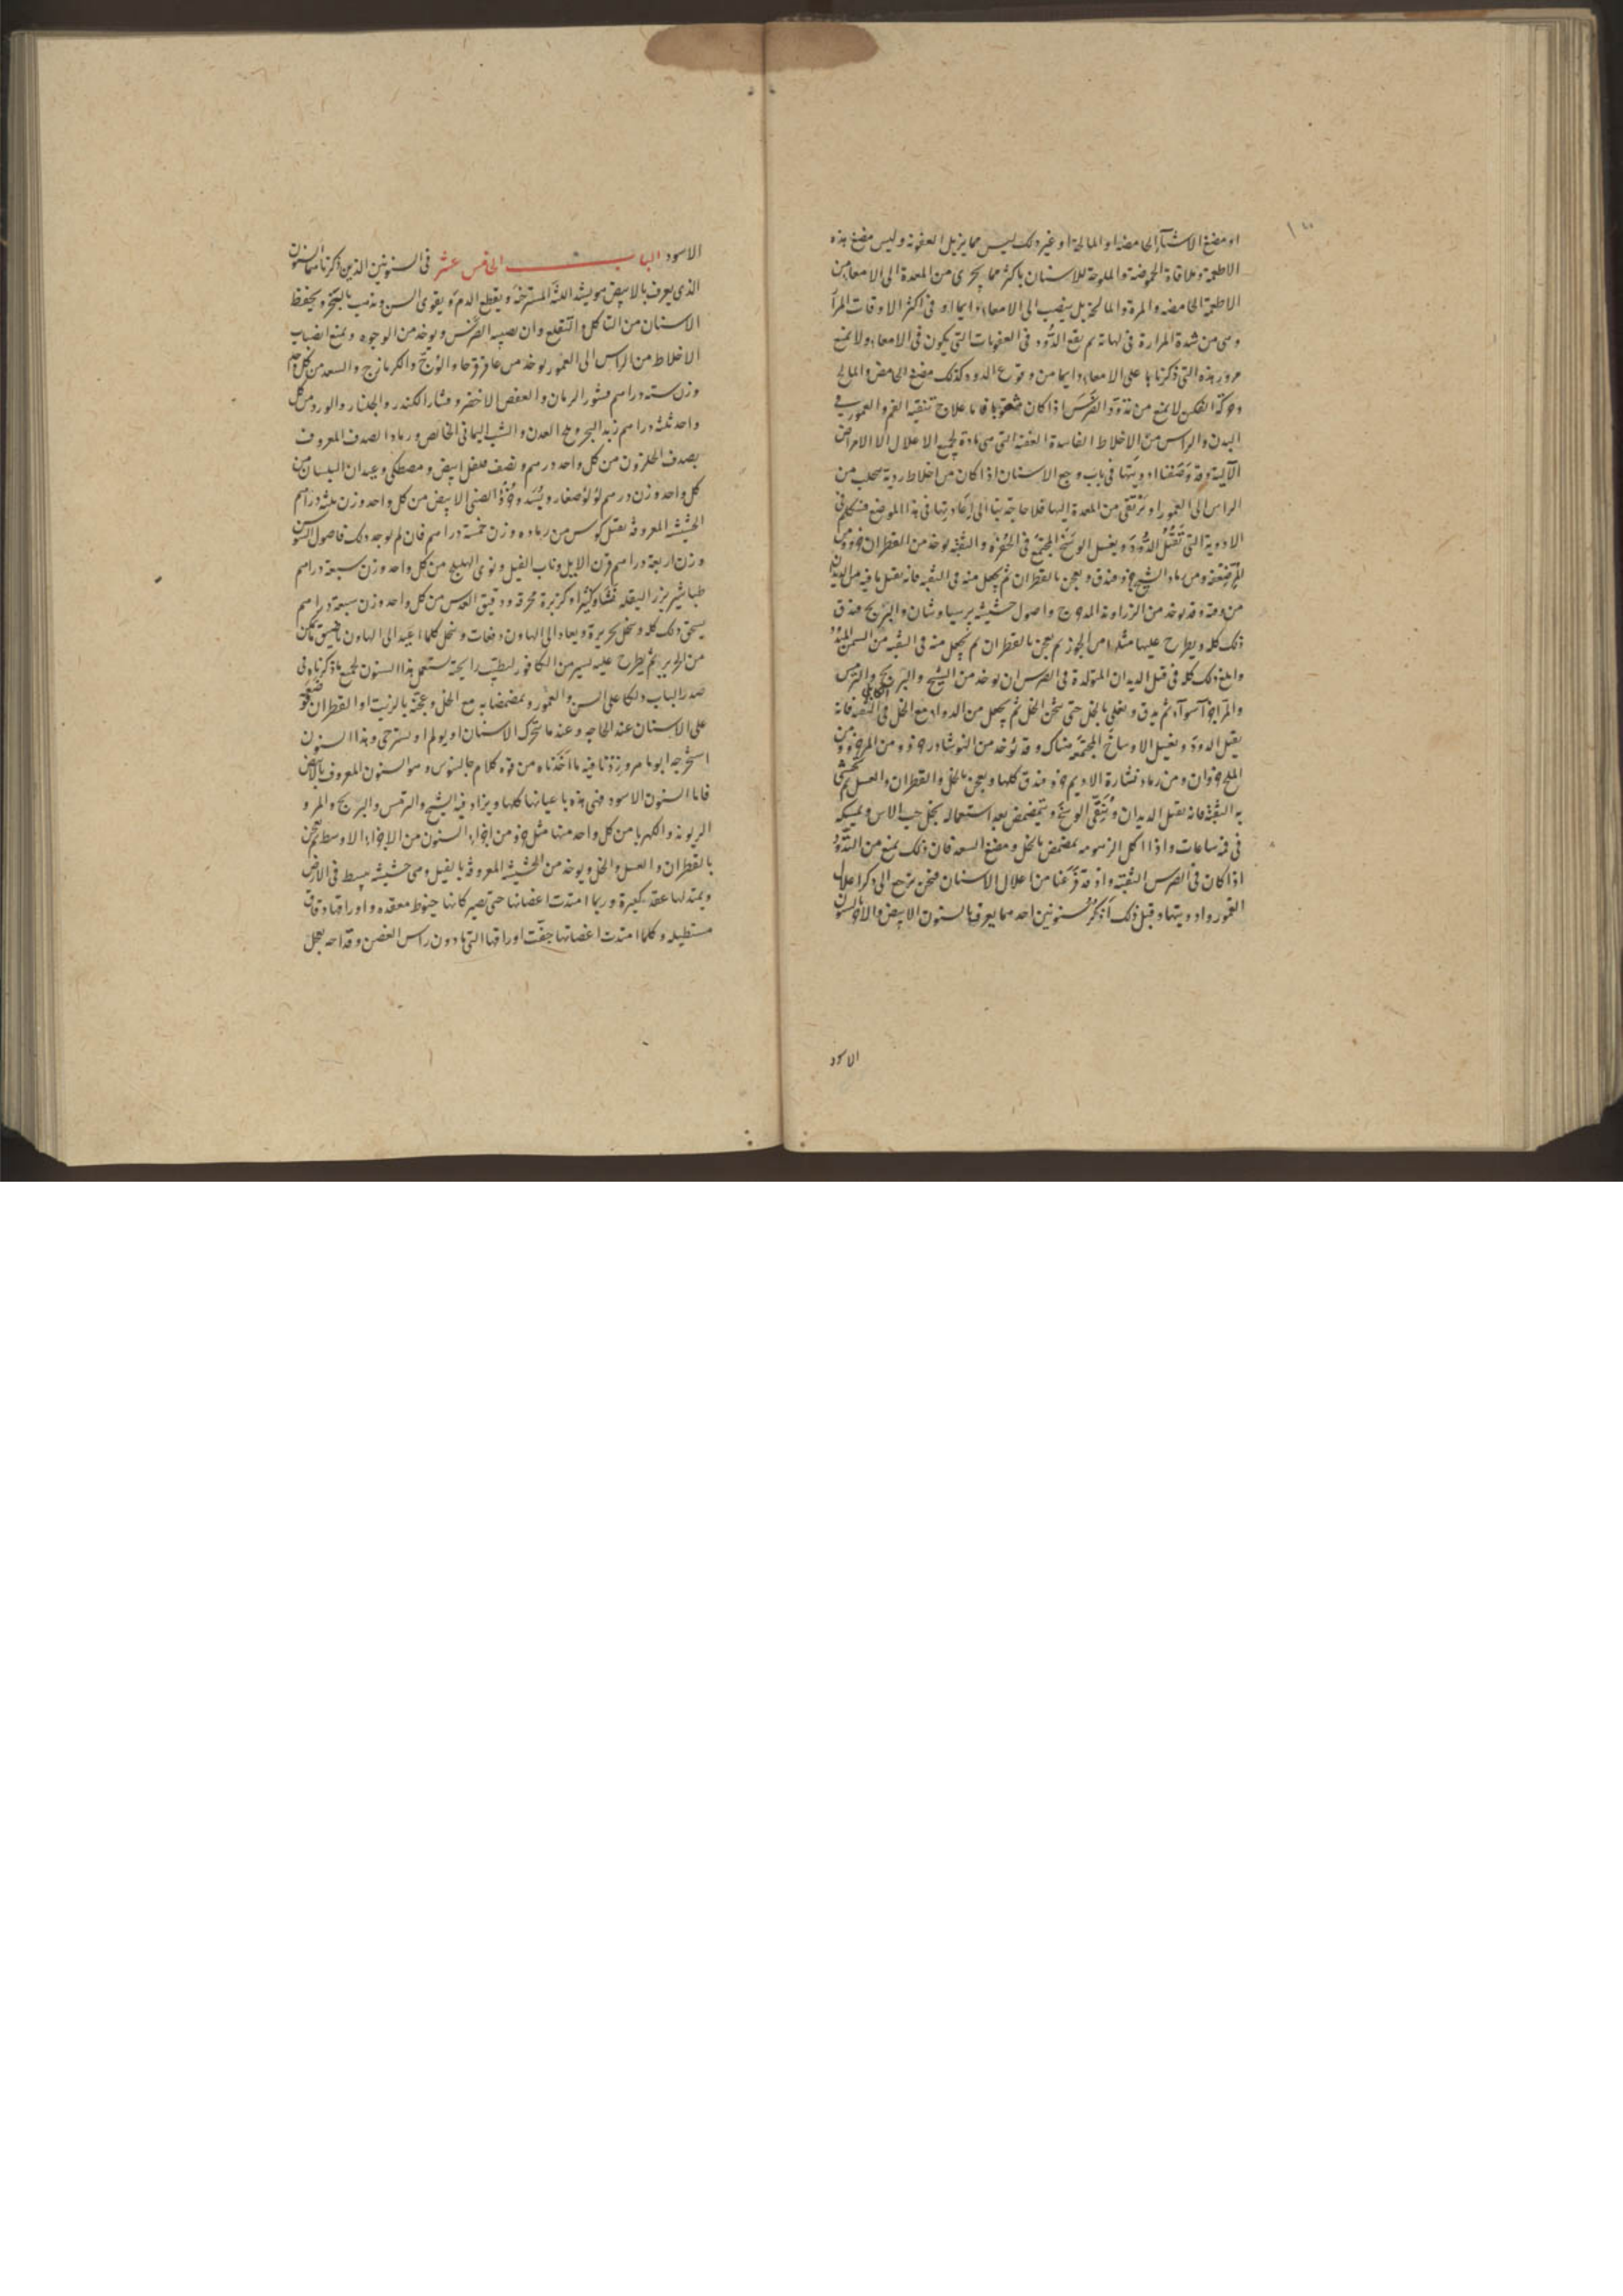 او مضغ الاشيآء الحامضه او المالحة او غير ذلك ليس مما يزيل العفونة وليس مضغ هذه
الاطعمة وملاقاة الحموضة والملوحة للاسنان باكثر مما يجرى من المعدة الى الامعا من
الاطعمة الحامضه والمرة والمالحة بل ينصب الى الامعاء دايما او فى اكثر الاوقات المرآ
وهى من شدة المرارة فى نهاية ثم يقع الدود فى العفونات التى يكون فى الامعاء ولا يمنع
مرور هذه التى ذكرناها على الامعاء دايما من وقوع الدود كذلك مضغ الحامض والمالح
وحركة الفكين لا يمنع من تدود الضرس اذا كان مثقوبا فاما علاج تنقية الفم والعمور فى
البدن والراس من الاخلاط الفاسدة العفنة التى هى مادة لجميع الاعلال الا الامراض
الآلية وقد وصفنا ادويتها فى باب وجع الاسنان اذا كان من اخلاط ردية تتحلب من
الراس الى العمور او ترتقى من المعدة اليها فلا حاجة بنا الى اعادتها فى هذا الموضع فنتكلم فى
الادوية التى تقتل الدود ويغسل الوسخ المجتمع فى الحفرة والثقبة يوخذ من القطران جزو ومن
المر نصفه ومن رماد الشيح جزو فيدق ويعجن بالقطران ثم يجعل منه فى الثقبة فانه يقتل ما فيه من الديدان
من وقته وقد يوخذ من الزراوند المدحرج واصول حشيشة برسياوشان والبرنج فيدق
ذلك كله ويطرح عليها مثلها من الجوز ثم يعجن بالقطران ثم يجعل منه فى الثقبة من السن المتدود
وابلغ ذلك كله فى قتل الديدان المتولدة فى الضرس ان يوخذ من الشيح والبرنج الكابلى والترمس
والمر اجزآ سوآء ثم يدق ويغلى بالخل حتى يثخن الخل ثم يجعل من الدواء مع الخل فى الثقبه فانه
يقتل الدود ويغسل الاوساخ المجتمعة هناك وقد يؤخذ من النوشادر جزو ومن المر جزو ومن
الملح جزوان ومن رماد نشارة الاديم جزو فيدق كلها ويعجن بالخل والقطران والعسل ثم يحشى
به الثقبة فانه يقتل الديدان وينقى الوسخ ويتمضمض بعد استعماله بخل حب الاس ويمسكه
فى فمه ساعات واذا اكل الزهومه يمضمض بالخل ومضغ السعد فان ذلك يمنع من التدود
اذا كان فى الضرس الثقبة واذ قد فرغنا من اعلال الاسنان فنحن نرجع الى ذكر اعلال
العمور وادويتها وقبل ذلك اذكر سنونين احدهما يعرف بالسنون الابيض والاخر بالسنون
الاسود
الاسود الباب الخامس عشر فى السنونين الذين ذكرناهما السنون
الذى يعرف بالابيض هو يشد اللثة المسترخية ويقطع الدم ويقوى السن ويذهب بالبخر ويحفظ
الاسنان من التاكل والتقلع وان يصيبه الضرس ويوخذ من الوجوه ويمنع انصباب
الاخلاط من الراس الى العمور يوخذ من عاقرقرحا والوج والكزمازج والسعد من كل واحد
وزن سته دراهم قشور الرمان والعفص الاخضر وقشار الكندر والجلنار والورد من كل
واحد ثلثة دراهم زبد البحر وملح العدن والشب اليمانى الخالص ورماد الصدف المعروف
بصدف الحلزون من كل واحد درهم ونصف فلفل ابيض ومصطكى وعيدان البلسان من
كل واحد وزن درهم لؤلؤ صغار وبسد وخزؤ الضب الابيض من كل واحد وزن ثلثه دراهم
الحشيشه المعروفه بقتل كوس من رماده وزن خمسة دراهم فان لم يوجد ذلك فاصول السوسن
وزن اربعة دراهم قرن الايل وناب الفيل ونوى الهليلج من كل واحد وزن سبعة دراهم
طباشير بزر البقله نشا وكثيرا وكزبرة محرقه ودقيق العدس من كل واحد وزن سبعة دراهم
يسحق ذلك كله وينخل بحريرة ويعاد الى الهاون دفعات وينخل كلما اعيد الى الهاون باضيق ما يمكن
من الحرير ثم يطرح عليه يسير من الكافور لتطيب رايحته يستعمل هذا السنون لجميع ما ذكرناه فى
صدر الباب دلكا على السن والعمور ويمضمضا به مع الخل وعجنه بالزيت او القطران
على الاسنان عند الحاجه وعند ما يتحرك الاسنان او يولم او يسترخى وهذا السنون
استخرجه ابو ماهر وزدنا فيه ما اخذناه من قوه كلام جالينوس وهو السنون المعروف بالابيض
فاما السنون الاسود فهى هذه باعيانها كلها ويزاد فيه الشيح والترمس والبرنج والمر و
الريوند والكهربا من كل واحد منها مثل جزو من اجزاء السنون من الاجزاء الاوسط ثم يعجن
بالقطران والعسل والخل ويوخذ من الحشيشة المعروفة بالفيل وهى حشيشه يبسط فى الارض
ويمتد لها عقد كبيرة وربما امتدت اغصانها حتى يصير كانها خيوط معقده واوراقها دقاق
مستطيله وكلما امتدت اغصانها جفت اوراقها التى ما دون راس الغصن وقد احد يجعل